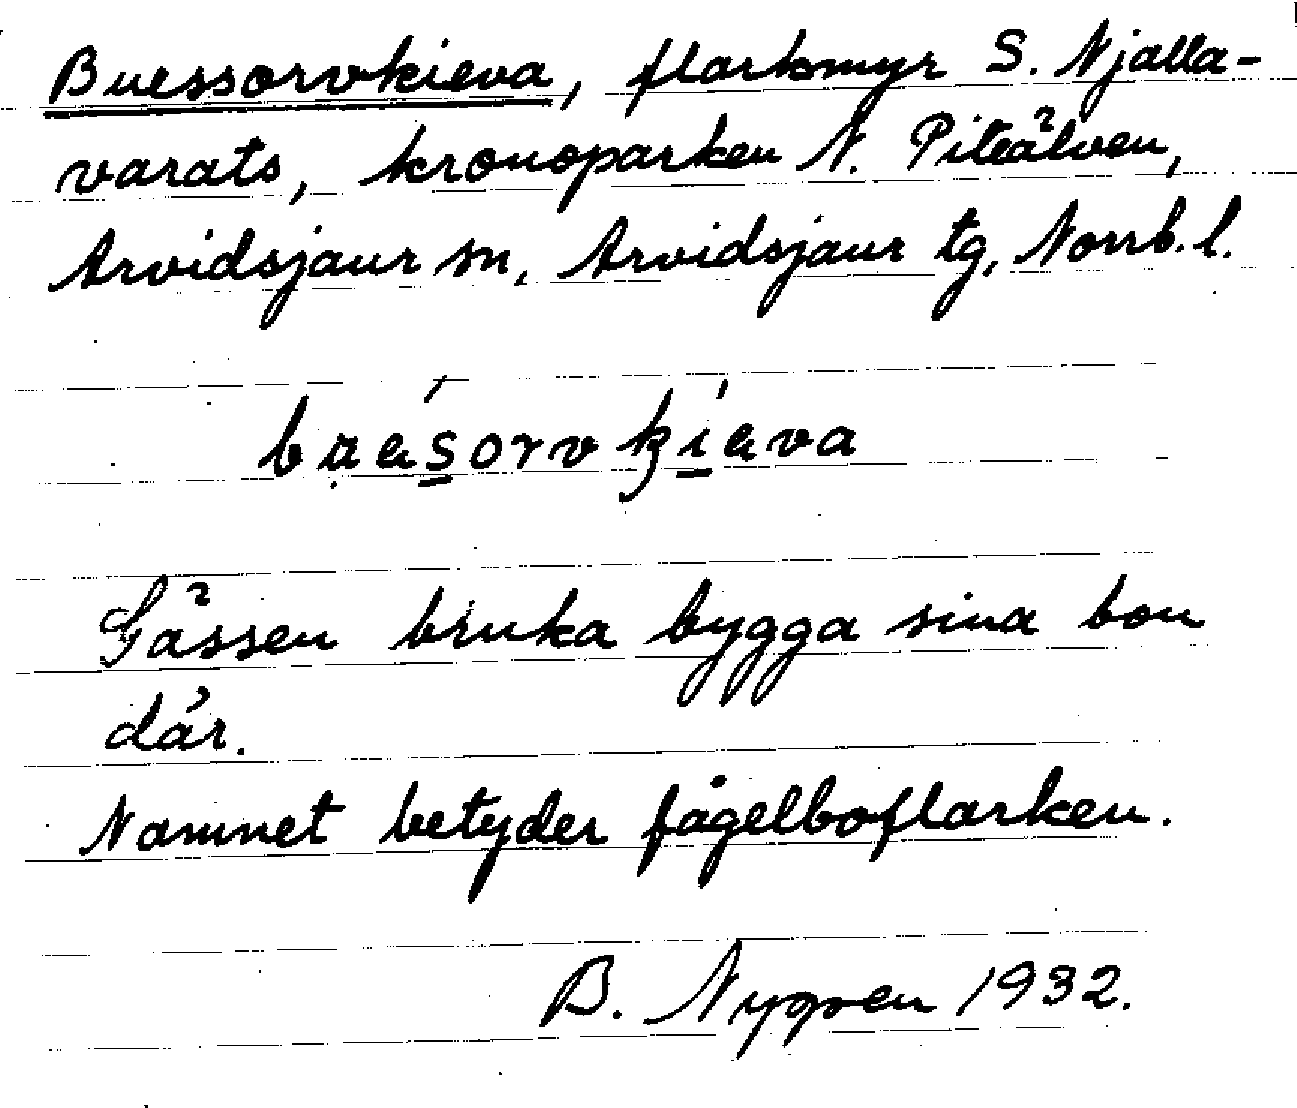 Buessorvkieva, flarkmyr S. Njalla-
varats, kronoparken N. Piteälven,
Arvidsjaur sn, Arvidsjaur tg, Norrb. l.
bu̞es̲orvkí̲eva
Gässen bruka bygga sina bon
där.
Namnet betyder fågelboflarken.
B. Nygren 1932.